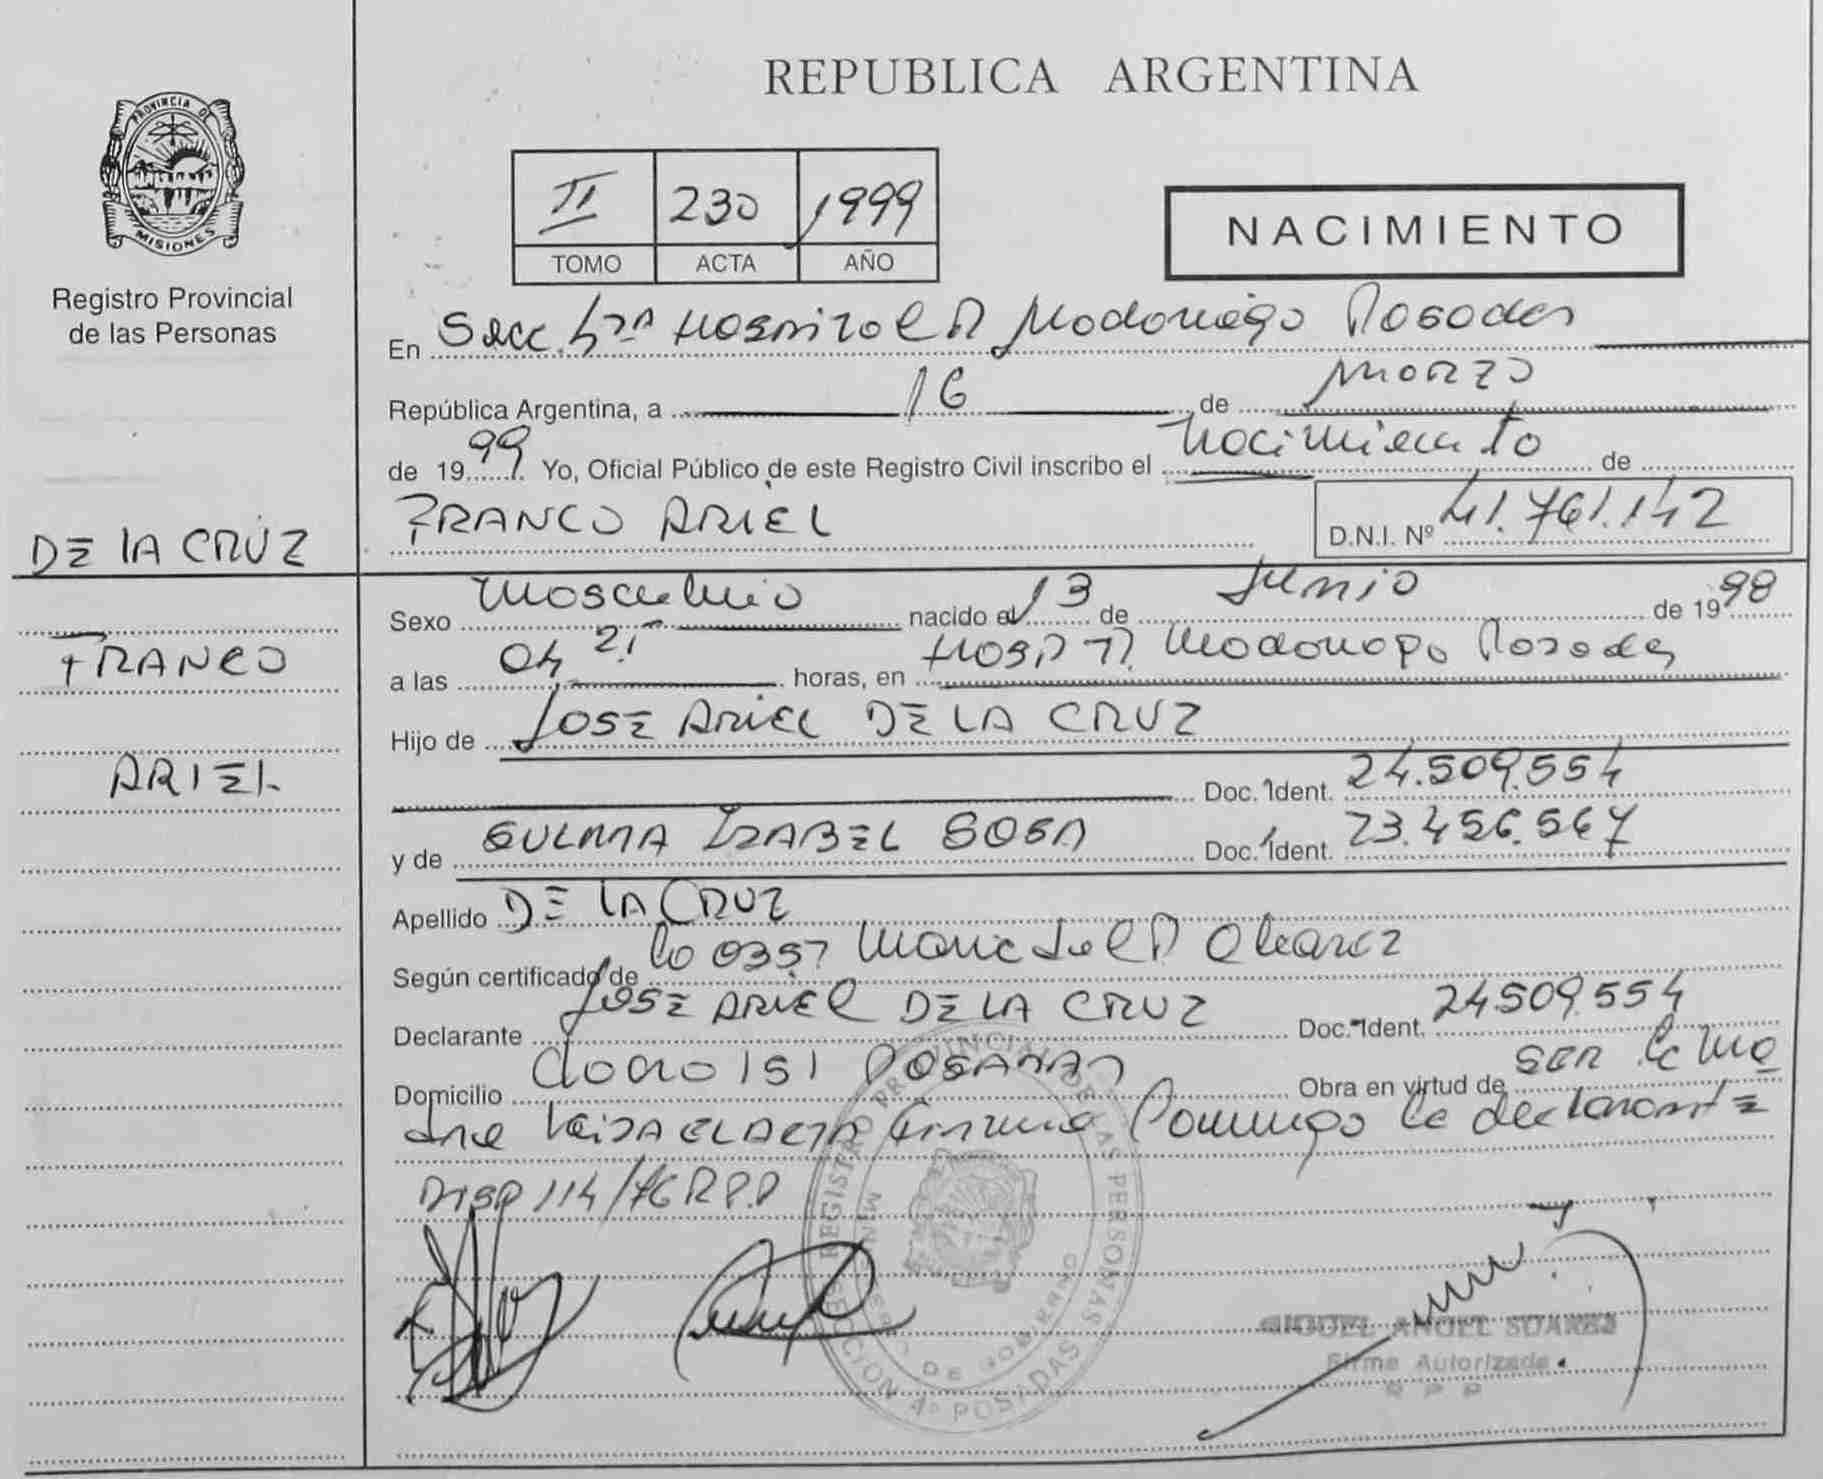 REPUBLICA ARGENTINA
PROVINCIA DE
MISIONES
Registro Provincial
de las Personas
II 230 1999
TOMO ACTA AÑO
NACIMIENTO
En Secc. 4ta Hospital R Madariaga Posadas
República Argentina, a 16 de Marzo
de 1999. Yo, Oficial Público de este Registro Civil inscribo el nacimiento de
FRANCO ARIEL D.N.I. Nº 41.761.142
DE LA CRUZ
FRANCO
ARIEL
Sexo masculino nacido el 13 de Junio de 1998
a las 04 horas, en Hosp R. Madariaga Posadas
Hijo de JOSE ARIEL DE LA CRUZ
Doc. Ident. 24.509.554
y de SULMA IZABEL SOSA Doc. Ident. 23.456.567
Apellido DE LA CRUZ
Según certificado de
Declarante JOSE ARIEL DE LA CRUZ Doc. Ident. 24.509.554
Domicilio 151 POSADAS Obra en virtud de SER
declarante
DISP 114/76 R.P.P
REGISTRO PROVINCIAL DE LAS PERSONAS
MINISTERIO DE GOBIERNO
SECCION 4º POSADAS
MIGUEL ANGEL SUAREZ
Firma Autorizada
R P P